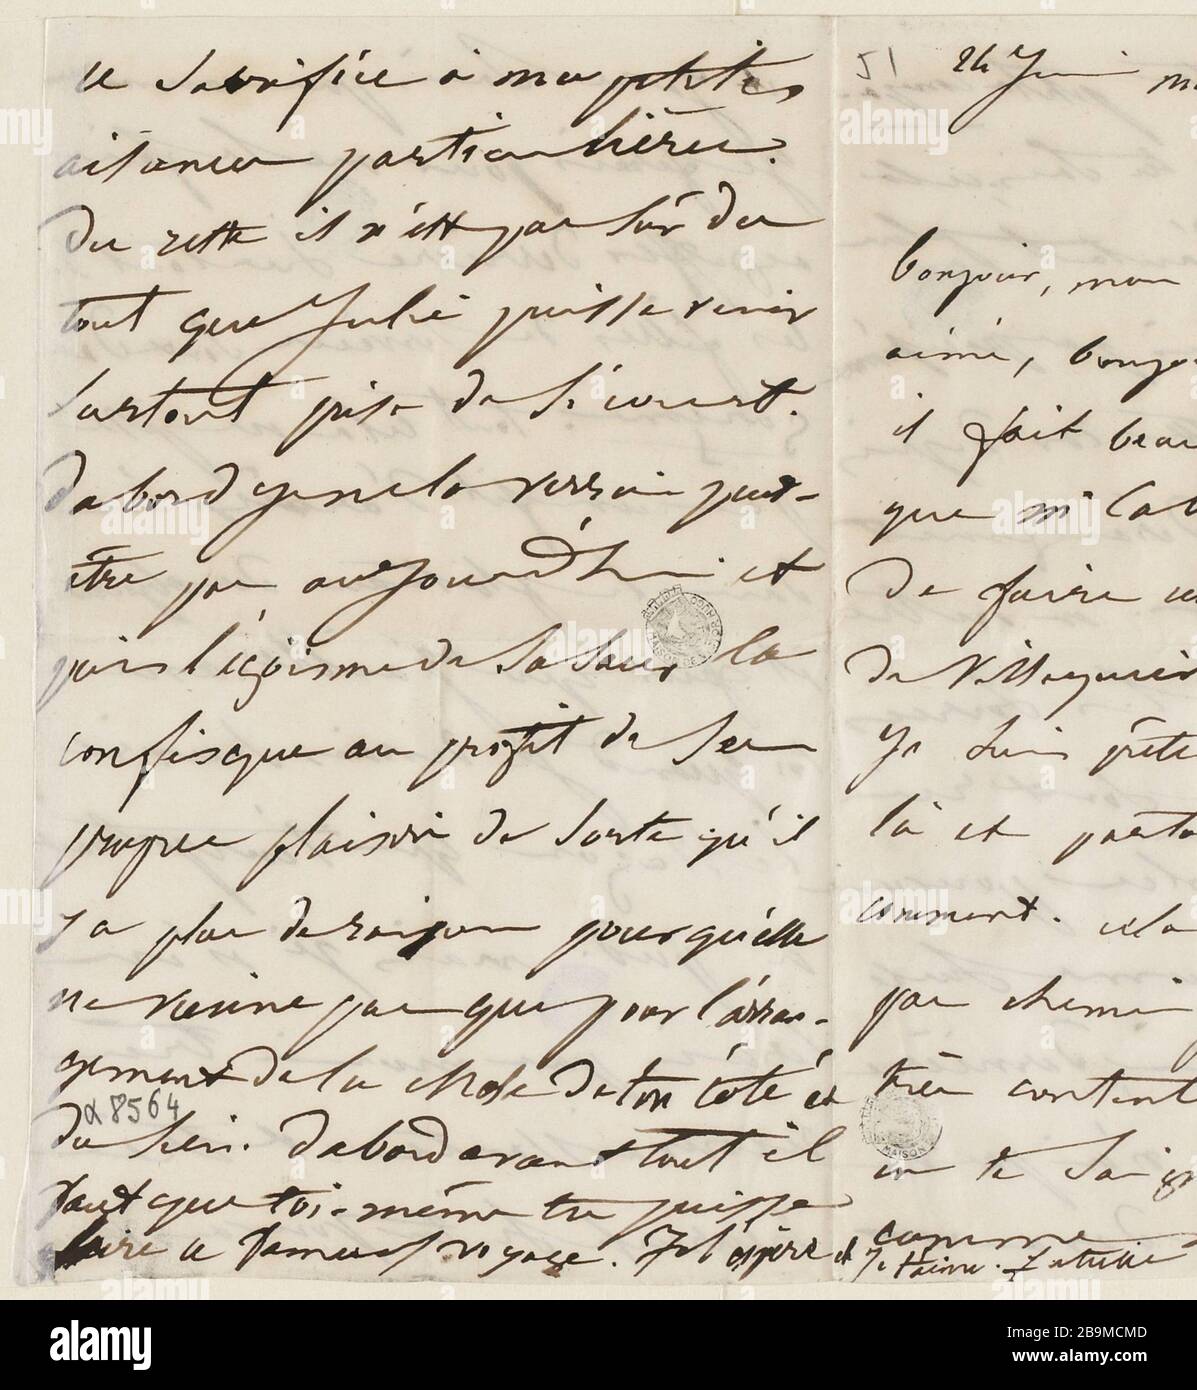 ce sacrifice à mes petites
aisances particulières.
Du reste il n'est pas sûr du
tout que Julie puisse venir
surtout prise de si court.
Dabord je ne la verrai peut-
être pas aujourd'hui et
puis l'égoisme de sa sœur la
confisque au profit de son
propre plaisir de sorte qu'il
y a plus de raison pour qu'elle
ne vienne pas que pour l'arran-
gement de la chose de ton côté et
du sien. Dabord avant tout il
faut que toi-même tu puisses
faire ce fameux voyage. Je l'espère et
α 8564
51
24 Juin
bonjour, mon
aimé, bonjour
il fait beau
que
de faire un
de Villequier
Je suis prête
là et
comment. cela
pas chemin
très content
en te
comme
Je t'aime. Juliette
MAISON
alamy
Image ID: 2B9MCMD
www.alamy.com